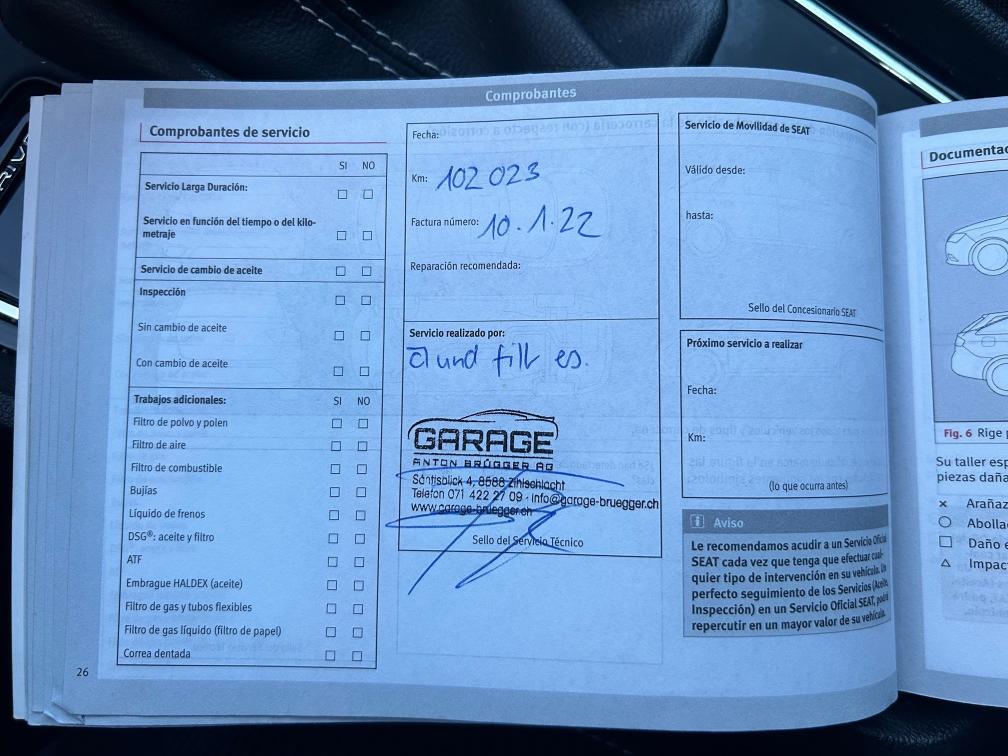 Comprobantes
Comprobantes de servicio
SI NO
Servicio Larga Duración:
Servicio en función del tiempo o del kilo-
metraje
Servicio de cambio de aceite
Inspección
Sin cambio de aceite
Con cambio de aceite
Trabajos adicionales: SI NO
Filtro de polvo y polen
Filtro de aire
Filtro de combustible
Bujías
Líquido de frenos
DSG®: aceite y filtro
ATF
Embrague HALDEX (aceite)
Filtro de gas y tubos flexibles
Filtro de gas líquido (filtro de papel)
Correa dentada
26
Fecha:
Km: 102 023
Factura número: 10.1.22
Reparación recomendada:
Servicio realizado por:
und
GARAGE
ANTON BRÜGGER AG
Säntisblick 4, 8588 Zihlschlacht
Telefon 071 422 27 09 - info@garage-bruegger.ch
www.garage-bruegger.ch
Sello del Servicio Técnico
Servicio de Movilidad de SEAT
Válido desde:
hasta:
Sello del Concesionario SEAT
Próximo servicio a realizar
Fecha:
Km:
(lo que ocurra antes)
i Aviso
Le recomendamos acudir a un Servicio Oficial
SEAT cada vez que tenga que efectuar cual-
quier tipo de intervención en su vehículo. Un
perfecto seguimiento de los Servicios (Aceite,
Inspección) en un Servicio Oficial SEAT, podrá
repercutir en un mayor valor de su vehículo.
Documentac
Fig. 6 Rige
Su taller esp
piezas daña
× Arañaz
○ Abolla
□ Daño e
△ Impac